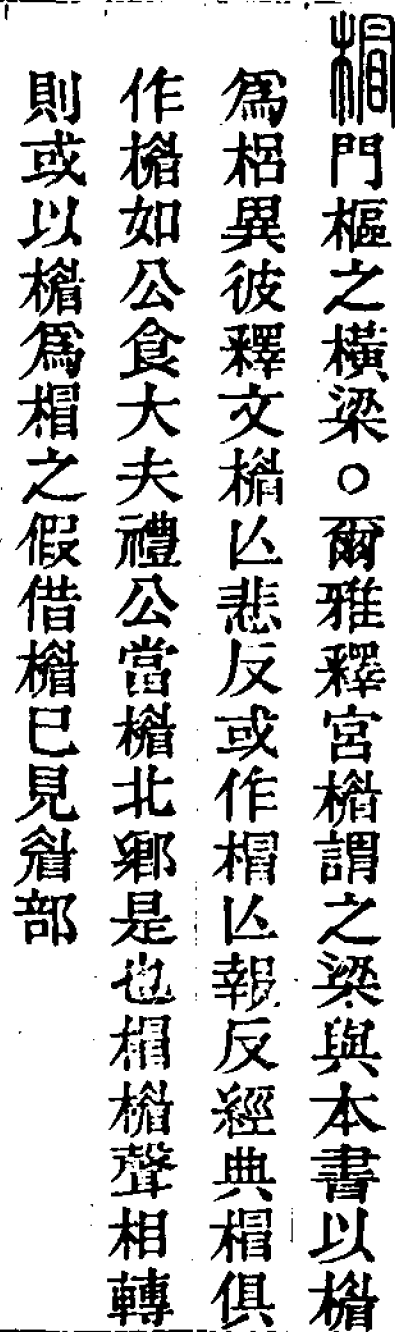 楣門樞之橫梁○爾雅釋宮楣謂之梁與本書以楣
爲梠異彼釋文楣亾悲反或作㮘亾報反經典㮘俱
作楣如公食大夫禮公當楣北鄉是也㮘楣聲相轉
則或以楣爲㮘之假借楣已見眉部